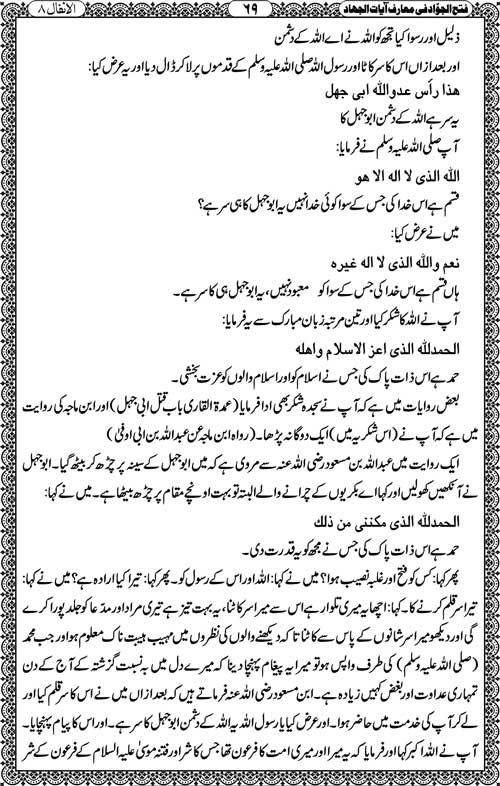 فتح الجوّاد فی معارف آیات الجهاد ۶۹ الانفال ۸
ذلیل اور رسوا کیا تجھ کو اللہ نے اے اللہ کے دشمن
اور بعد ازاں اس کا سر کاٹا اور رسول اللہ صلی اللہ علیہ وسلم کے قدموں پر لا کر ڈال دیا اور یہ عرض کیا:
هذا رأس عدوالله ابی جهل
یہ سر ہے اللہ کے دشمن ابوجہل کا
آپ صلی اللہ علیہ وسلم نے فرمایا:
الله الذی لا اله الا هو
قسم ہے اس خدا کی جس کے سوا کوئی خدا نہیں یہ ابوجہل کا ہی سر ہے؟
میں نے عرض کیا:
نعم والله الذی لا اله غیره
ہاں قسم ہے اس خدا کی جس کے سوا کو معبود نہیں، یہ ابوجہل ہی کا سر ہے۔
آپ نے اللہ کا شکر کیا اور تین مرتبہ زبان مبارک سے یہ فرمایا:
الحمدلله الذی اعز الاسلام واهله
حمد ہے اس ذات پاک کی جس نے اسلام کو اور اسلام والوں کو عزت بخشی۔
بعض روایات میں ہے کہ آپ نے سجدہ شکر بھی ادا فرمایا (عمدۃ القاری باب قتل ابی جہل) اور ابن ماجہ کی روایت
میں ہے کہ آپ نے (اس شکریہ میں) ایک دوگانہ پڑھا۔ (رواہ ابن ماجہ عن عبداللہ بن ابی اوفیٰ)
ایک روایت میں عبداللہ بن مسعود رضی اللہ عنہ سے مروی ہے کہ میں ابوجہل کے سینہ پر چڑھ کر بیٹھ گیا۔ ابوجہل
نے آنکھیں کھولیں اور کہا اے بکریوں کے چرانے والے البتہ تو بہت اونچے مقام پر چڑھ بیٹھا ہے۔ میں نے کہا:
الحمدلله الذی مکننی من ذلك
حمد ہے اس ذات پاک کی جس نے مجھ کو یہ قدرت دی۔
پھر کہا: کس کو فتح اور غلبہ نصیب ہوا؟ میں نے کہا: اللہ اور اس کے رسول کو۔ پھر کہا: تیرا کیا ارادہ ہے؟ میں نے کہا:
تیرا سر قلم کرنے کا۔ کہا: اچھا یہ میری تلوار ہے اس سے میرا سر کاٹنا، یہ بہت تیز ہے تیری مراد اور مدعا کو جلد پورا کرے
گی اور دیکھو میرا سر شانوں کے پاس سے کاٹنا تاکہ دیکھنے والوں کی نظروں میں مہیب ہیبت ناک معلوم ہو اور جب محمد
(صلی اللہ علیہ وسلم) کی طرف واپس ہو تو میرا یہ پیغام پہنچا دینا کہ میرے دل میں بہ نسبت گزشتہ کے آج کے دن
تمہاری عداوت اور بغض کہیں زیادہ ہے۔ ابن مسعود رضی اللہ عنہ فرماتے ہیں کہ بعد ازاں میں نے اس کا سر قلم کیا اور
لے کر آپ کی خدمت میں حاضر ہوا۔ اور عرض کیا یا رسول اللہ یہ اللہ کے دشمن ابوجہل کا سر ہے۔ اور اس کا پیام پہنچایا۔
آپ نے اللہ اکبر کہا اور فرمایا کہ یہ میرا اور میری امت کا فرعون تھا جس کا شر اور فتنہ موسیٰ علیہ السلام کے فرعون کے شر